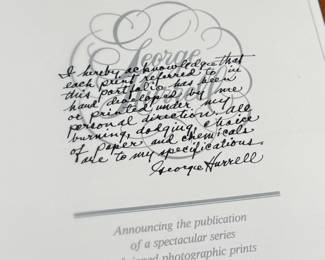 George
I hereby acknowledge that
each print referred to in
this portfolio has been
hand developed by me
or printed under my
personal direction. All
burning, dodging, choice
of paper and chemicals
are to my specifications.
George Hurrell
Announcing the publication
of a spectacular series
signed photographic prints